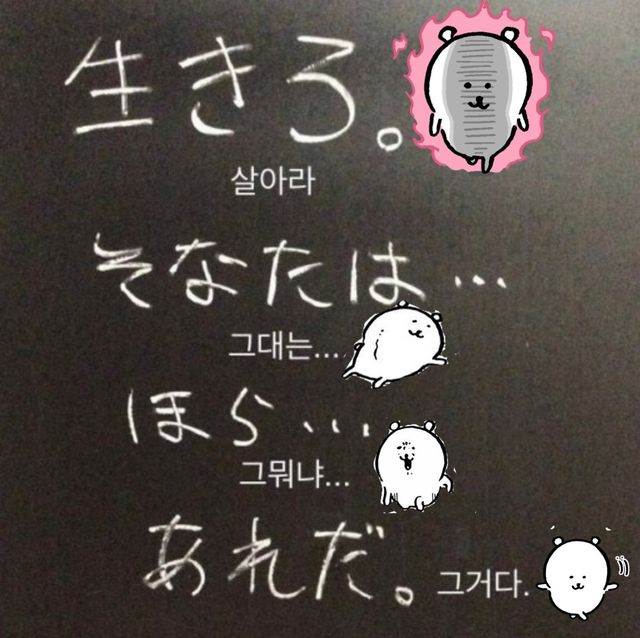 生きろ。
살아라
そなたは…
그대는...
ほら...
그뭐냐...
あれだ。
그거다.